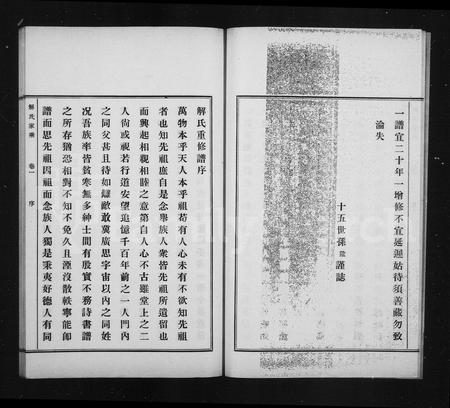 一譜宜二十年一增修不宜延遲姑待須善藏勿致
淪失
十五世孫 謹誌
解氏重修譜序
萬物本乎天人本乎祖苟有人心未有不欲知先祖
者也知先祖庶自是念舉族人衆皆先祖所遺留也
而興起相親相睦之意第自人心不古雖堂上之二
人尚或視若行道安望追憶千百年前之一人門內
之同父甚且待如讎敵敢冀廣思宇宙以內之同姓
况吾族率皆貧寒無多紳士間有殷實不務詩書譜
之所存猶恐相對不知不免久且湮沒散軼寧能卹
譜而思先祖因祖而念族人獨是秉夷好德人有同
解氏家乘 卷一 序